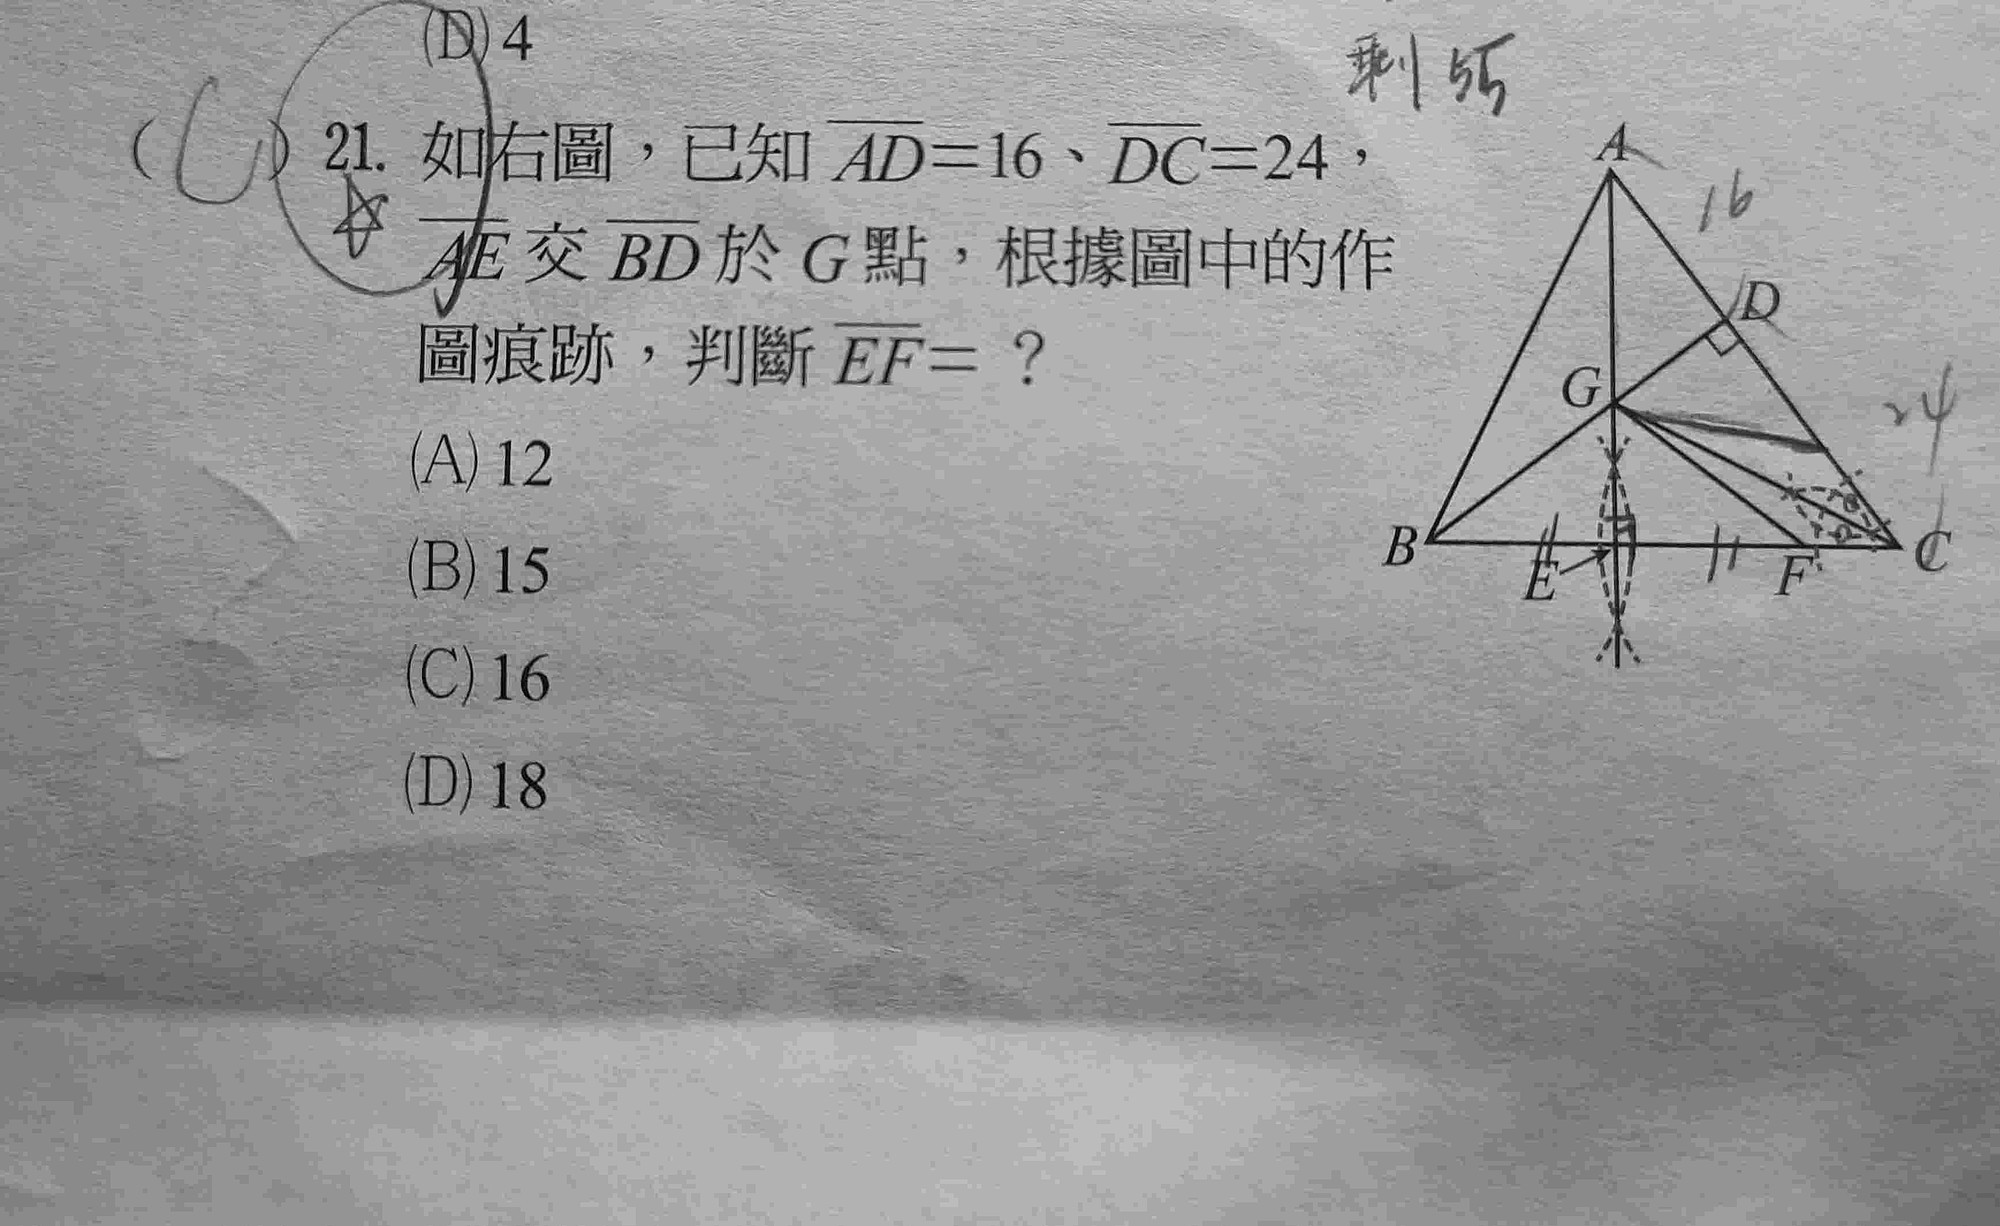 (D) 4
剩 55
( C ) 21. 如右圖，已知 AD=16、DC=24，
AE 交 BD 於 G 點，根據圖中的作
圖痕跡，判斷 EF= ？
(A) 12
(B) 15
(C) 16
(D) 18
A
16
D
G
24
B
E
F
C